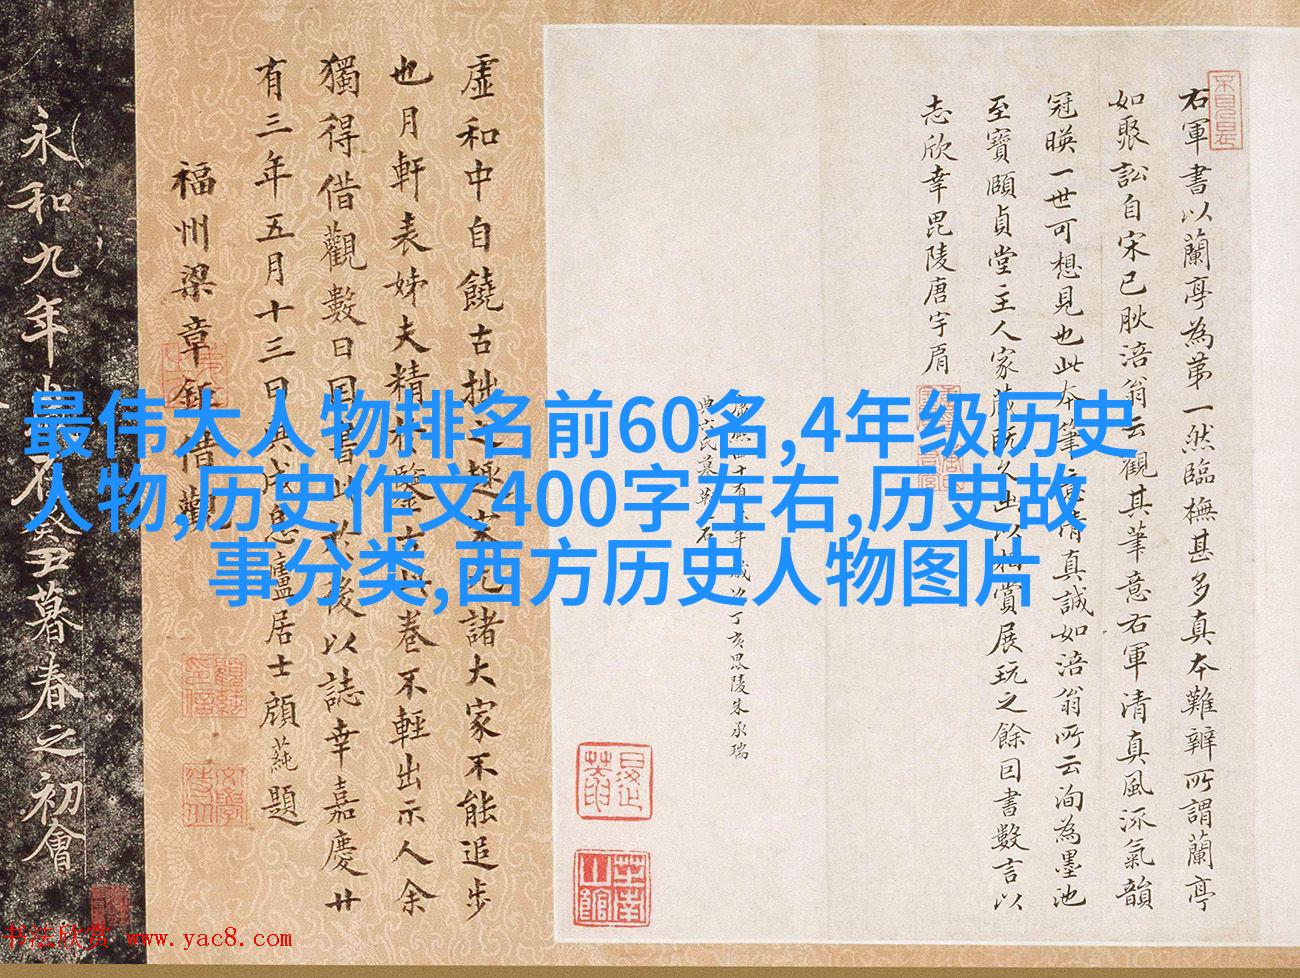 右軍書以蘭亭為第一然臨橅甚多真本難辨所謂蘭亭
如聚訟自宋已肰涪翁云觀其筆意右軍清真風流氣韻
冠暎一世可想見也此本筆意清真誠如涪翁所云洵為墨池
至寶頤貞堂主人家藏既久出以相賞展玩之餘因書數言以
志欣幸毘陵唐宇肩
丁亥毘陵朱承瑞
虛和中自饒古拙之趣宋元諸大家不能追步
也月軒表姊夫精於鑒古此卷不輕出示人余
獨得借觀數日因書此於後以誌幸嘉慶廿
有三年五月十三日共成息廬居士顧蒓題
福州梁章鉅借觀
永和九年歲在癸丑暮春之初會
最伟大人物排名前60名,4年级历史
人物,历史作文400字左右,历史故
事分类,西方历史人物图片
书法欣赏 www.yac8.com